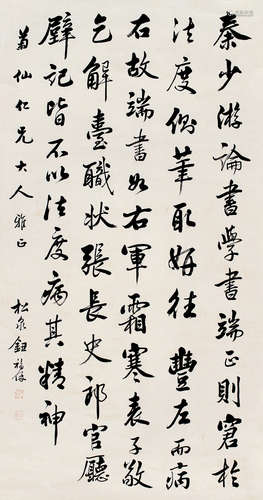 秦少游論書學書端正則窘於
法度側筆取妍往往豐左而病
右故端書如右軍霜寒表子敬
乞解臺職狀張長史郎官廳
壁記皆不以法度病其精神
菊仙仁兄大人雅正
松泉鈕福保